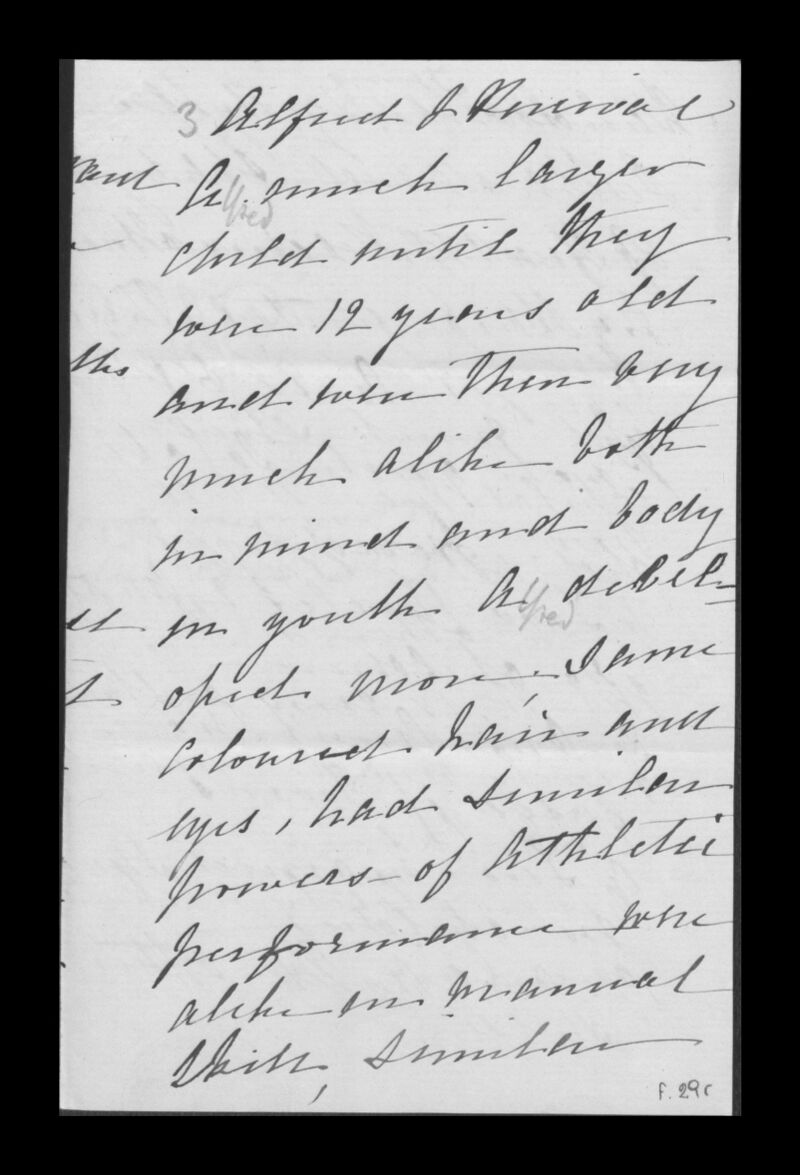 3 Alfred & Percival
A. much larger
lfred
child until they
were 12 years old
and were then very
much alike both
in mind and body
in youth A devel=
lfred
oped more; same
coloured hair and
eyes, had similar
powers of Athletic
performance were
alike in manual
skill, similar
f. 29r